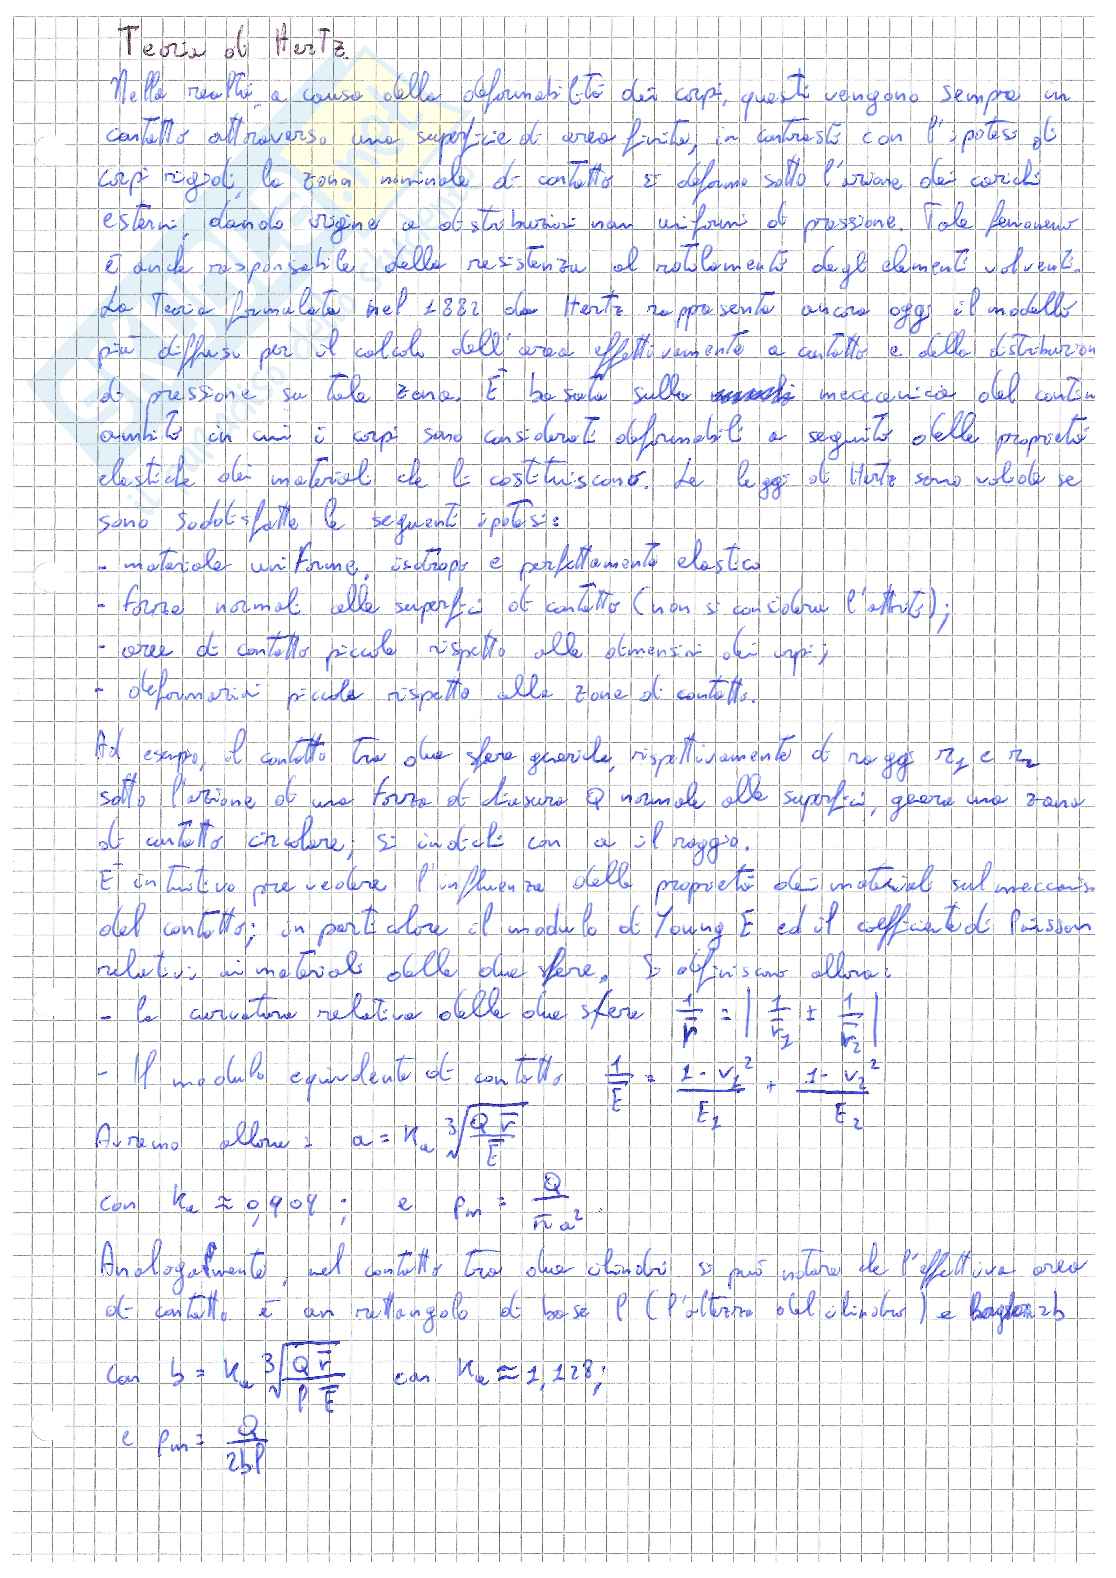 Teoria di Hertz
Nella realtà, a causa della deformabilità dei corpi, questi vengono sempre in
contatto attraverso una superficie di area finita, in contrasto con l'ipotesi di
corpi rigidi, la zona nominale di contatto si deforma sotto l'azione dei carichi
esterni, dando origine a distribuzioni non uniformi di pressione. Tale fenomeno
è anche responsabile della resistenza al rotolamento degli elementi volventi.
La Teoria formulata nel 1882 da Hertz rappresenta ancora oggi il modello
più diffuso per il calcolo dell'area effettivamente a contatto e della distribuzion
di pressione su tale zona. È basata sulla meccanica del contin
ambito in cui i corpi sono considerati deformabili a seguito delle proprietà
elastiche dei materiali che li costituiscono. Le leggi di Hertz sono valide se
sono soddisfatte le seguenti ipotesi:
- materiale uniforme, isotropo e perfettamente elastico
- forze normali alle superfici di contatto (non si considera l'attrito);
- aree di contatto piccole rispetto alle dimensioni dei corpi;
- deformazioni piccole rispetto alle zone di contatto.
Ad esempio, il contatto tra due sfere generiche, rispettivamente di raggi r1 e r2
sotto l'azione di una forza di chiusura Q normale alle superfici, genera una zona
di contatto circolare; si indichi con a il raggio.
È intuitivo prevedere l'influenza delle proprietà dei materiali sul meccanis
del contatto; in particolare il modulo di Young E ed il coefficiente di Poisson
relativi ai materiali delle due sfere. Si definiscano allora:
- la curvatura relativa delle due sfere 1/r̅ = | 1/r̅1 ± 1/r̅2 |
- Il modulo equivalente di contatto 1/E̅ = (1 - v1²)/E1 + (1 - v2²)/E2
Avremo allora: a = Ka ∛(Q r̅/E̅)
con Ka ≈ 0,909 ; e pm = Q/(π a²).
Analogamente, nel contatto tra due cilindri si può notare che l'effettiva area
di contatto è un rettangolo di base l (l'altezza del cilindro) e 2b
con b = Ka ∛(Q r̅/(l E̅)) con Ka ≈ 1,128;
e pm = Q/(2bl)